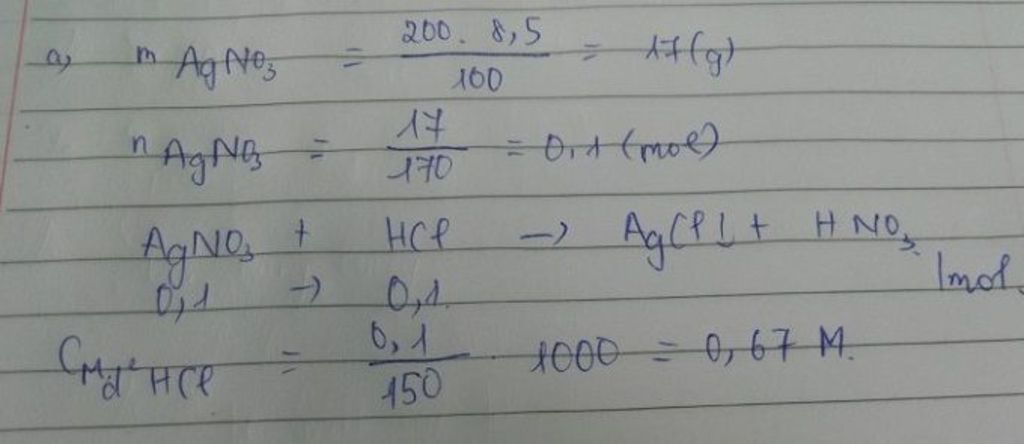 a) m AgNO₃ = 200. 8,5 / 100 = 17(g)
n AgNO₃ = 17 / 170 = 0,1 (mol)
AgNO₃ + HCl → AgCl↓ + HNO₃
0,1 → 0,1 /mol.
C_M d² HCl = 0,1 / 150 . 1000 = 0,67 M.